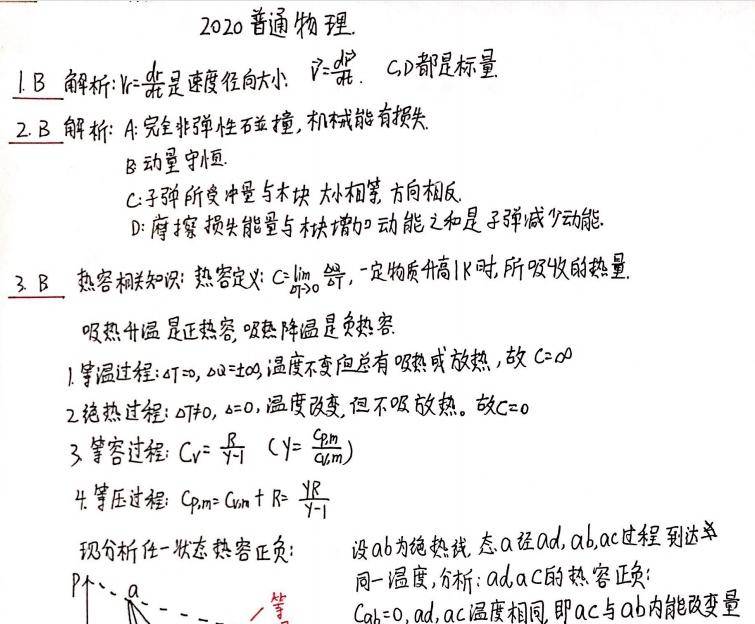 2020普通物理.
1. B 解析: Vr=dr/dt是速度径向大小. V⃗=dr⃗/dt. C,D都是标量.
2. B 解析: A:完全非弹性碰撞,机械能有损失.
B:动量守恒.
C:子弹所受冲量与木块 大小相等,方向相反.
D:摩擦损失能量与木块增加动能之和是子弹减少动能.
3. B 热容相关知识: 热容定义: C=lim ΔT→0 ΔQ/ΔT, 一定物质升高1K时,所吸收的热量.
吸热升温是正热容,吸热降温是负热容.
1.等温过程:ΔT=0, ΔQ=±∞,温度不变但总有吸热或放热,故 C=∞
2.绝热过程:ΔT≠0, Δ=0,温度改变,但不吸放热。故C=0
3.等容过程: Cv=R/γ-1 (γ=Cp,m/Cv,m)
4.等压过程: Cp,m=Cv,m+R=γR/γ-1
现分析任一状态热容正负:
设ab为绝热线,态a经ad,ab,ac过程到达
同一温度,分析:ad,ac的热容正负:
Cab=0, ad,ac温度相同,即ac与ab内能改变量
P
a
等